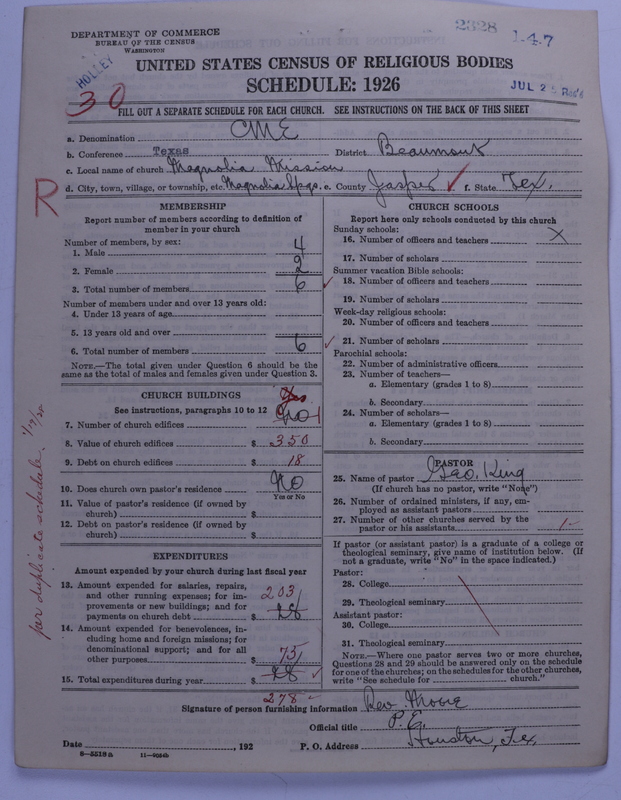 DEPARTMENT OF COMMERCE
BUREAU OF THE CENSUS
WASHINGTON
2328 1-4-7
HOLLEY
30
UNITED STATES CENSUS OF RELIGIOUS BODIES
SCHEDULE: 1926
JUL 2
FILL OUT A SEPARATE SCHEDULE FOR EACH CHURCH. SEE INSTRUCTIONS ON THE BACK OF THIS SHEET
a. Denomination CME
b. Conference Texas District Beaumont
c. Local name of church Magnolia Mission
d. City, town, village, or township, etc. Magnolia Spgs. e. County Jasper ✓ f. State Tex.
R
MEMBERSHIP
Report number of members according to definition of member in your church
Number of members, by sex:
1. Male 4
2. Female 2
3. Total number of members 6 ✓
Number of members under and over 13 years old:
4. Under 13 years of age
5. 13 years old and over
6. Total number of members 6 ✓
NOTE.—The total given under Question 6 should be the same as the total of males and females given under Question 3.
CHURCH BUILDINGS
See instructions, paragraphs 10 to 12 Yes
7. Number of church edifices No 1
8. Value of church edifices $ 350
9. Debt on church edifices $ 18
10. Does church own pastor's residence No
Yes or No
11. Value of pastor's residence (if owned by church) $
12. Debt on pastor's residence (if owned by church) $
EXPENDITURES
Amount expended by your church during last fiscal year
13. Amount expended for salaries, repairs, and other running expenses; for improvements or new buildings; and for payments on church debt $ 203 28
14. Amount expended for benevolences, including home and foreign missions; for denominational support; and for all other purposes $ 73
15. Total expenditures during year $ 28 ✓
278
per duplicate schedule.
CHURCH SCHOOLS
Report here only schools conducted by this church
Sunday schools:
16. Number of officers and teachers X
17. Number of scholars
Summer vacation Bible schools:
18. Number of officers and teachers
19. Number of scholars
Week-day religious schools:
20. Number of officers and teachers
21. Number of scholars
Parochial schools:
22. Number of administrative officers
23. Number of teachers—
a. Elementary (grades 1 to 8)
b. Secondary
24. Number of scholars—
a. Elementary (grades 1 to 8)
b. Secondary
PASTOR
25. Name of pastor Geo. King
(If church has no pastor, write "None")
26. Number of ordained ministers, if any, employed as assistant pastors
27. Number of other churches served by the pastor or his assistants 1
If pastor (or assistant pastor) is a graduate of a college or theological seminary, give name of institution below. (If not a graduate, write "No" in the space indicated.)
Pastor:
28. College
29. Theological seminary
Assistant pastor:
30. College
31. Theological seminary
NOTE.—Where one pastor serves two or more churches, Questions 28 and 29 should be answered only on the schedule for one of the churches; on the schedules for the other churches, write "See schedule for church."
Signature of person furnishing information Rev.
Official title P.E.
Date , 192 P. O. Address Houston, Tex
8-5518a 11-9034b